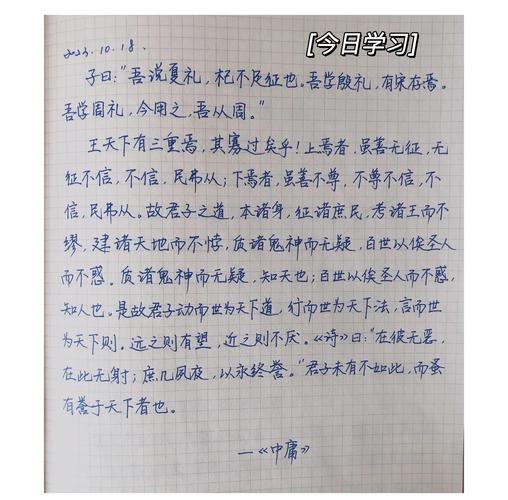 [今日学习]
2023.10.18.
子曰:“吾说夏礼,杞不足征也。吾学殷礼,有宋存焉。
吾学周礼,今用之,吾从周。”
王天下有三重焉,其寡过矣乎!上焉者,虽善无征,无
征不信,不信,民弗从;下焉者,虽善不尊,不尊不信,不
信,民弗从。故君子之道,本诸身,征诸庶民,考诸王而不
缪,建诸天地而不悖,质诸鬼神而无疑,百世以俟圣人
而不惑。质诸鬼神而无疑,知天也;百世以俟圣人而不惑,
知人也。是故君子动而世为天下道,行而世为天下法,言而世
为天下则。远之则有望,近之则不厌。《诗》曰:“在彼无恶,
在此无射;庶几夙夜,以永终誉。”君子未有不如此,而蚤
有誉于天下者也。
—《中庸》